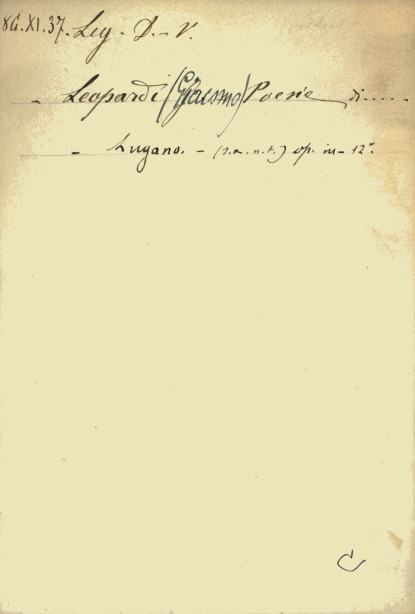 86.XI.37. Leg. D.-V.
- Leopardi (Giacomo) Poesie di.....
- Lugano. - (s.a.n.t.) op. in-12°.
C